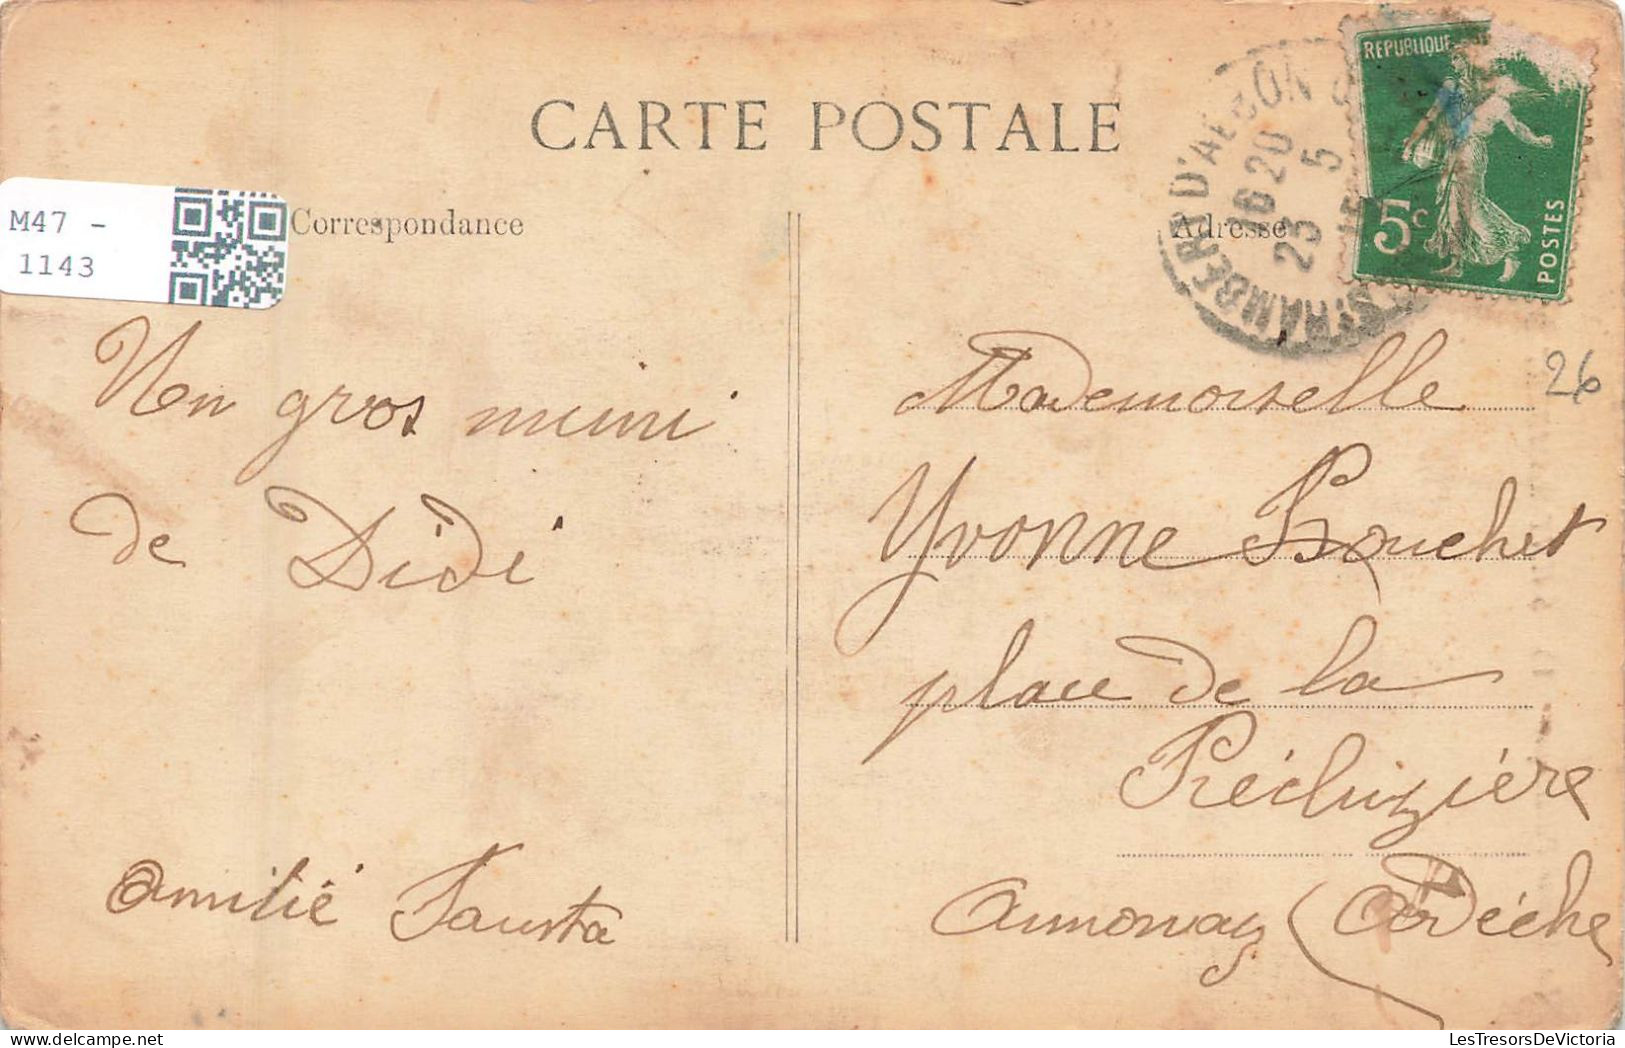 CARTE POSTALE
M47 -
1143
Correspondance
Adresse
REPUBLIQUE
5c
POSTES
16 20
23 5
Un gros mimi
de Didi
Amitié Fausta
26
Mademoiselle
Yvonne
place de la
Annonay (Ardèche
LesTresorsDeVictoria